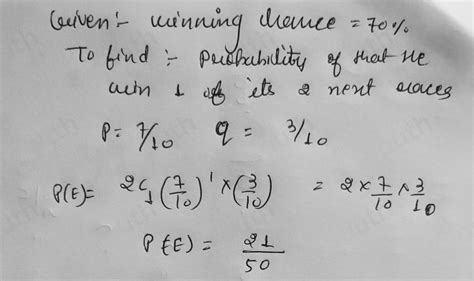 Given :- winning chance = 70%
To find :- Probability of that He
win 1 of its 2 next races
P = 7/10   q = 3/10
P(E) = 2C1 (7/10)^1 × (3/10) = 2 × 7/10 × 3/10
P(E) = 21/50